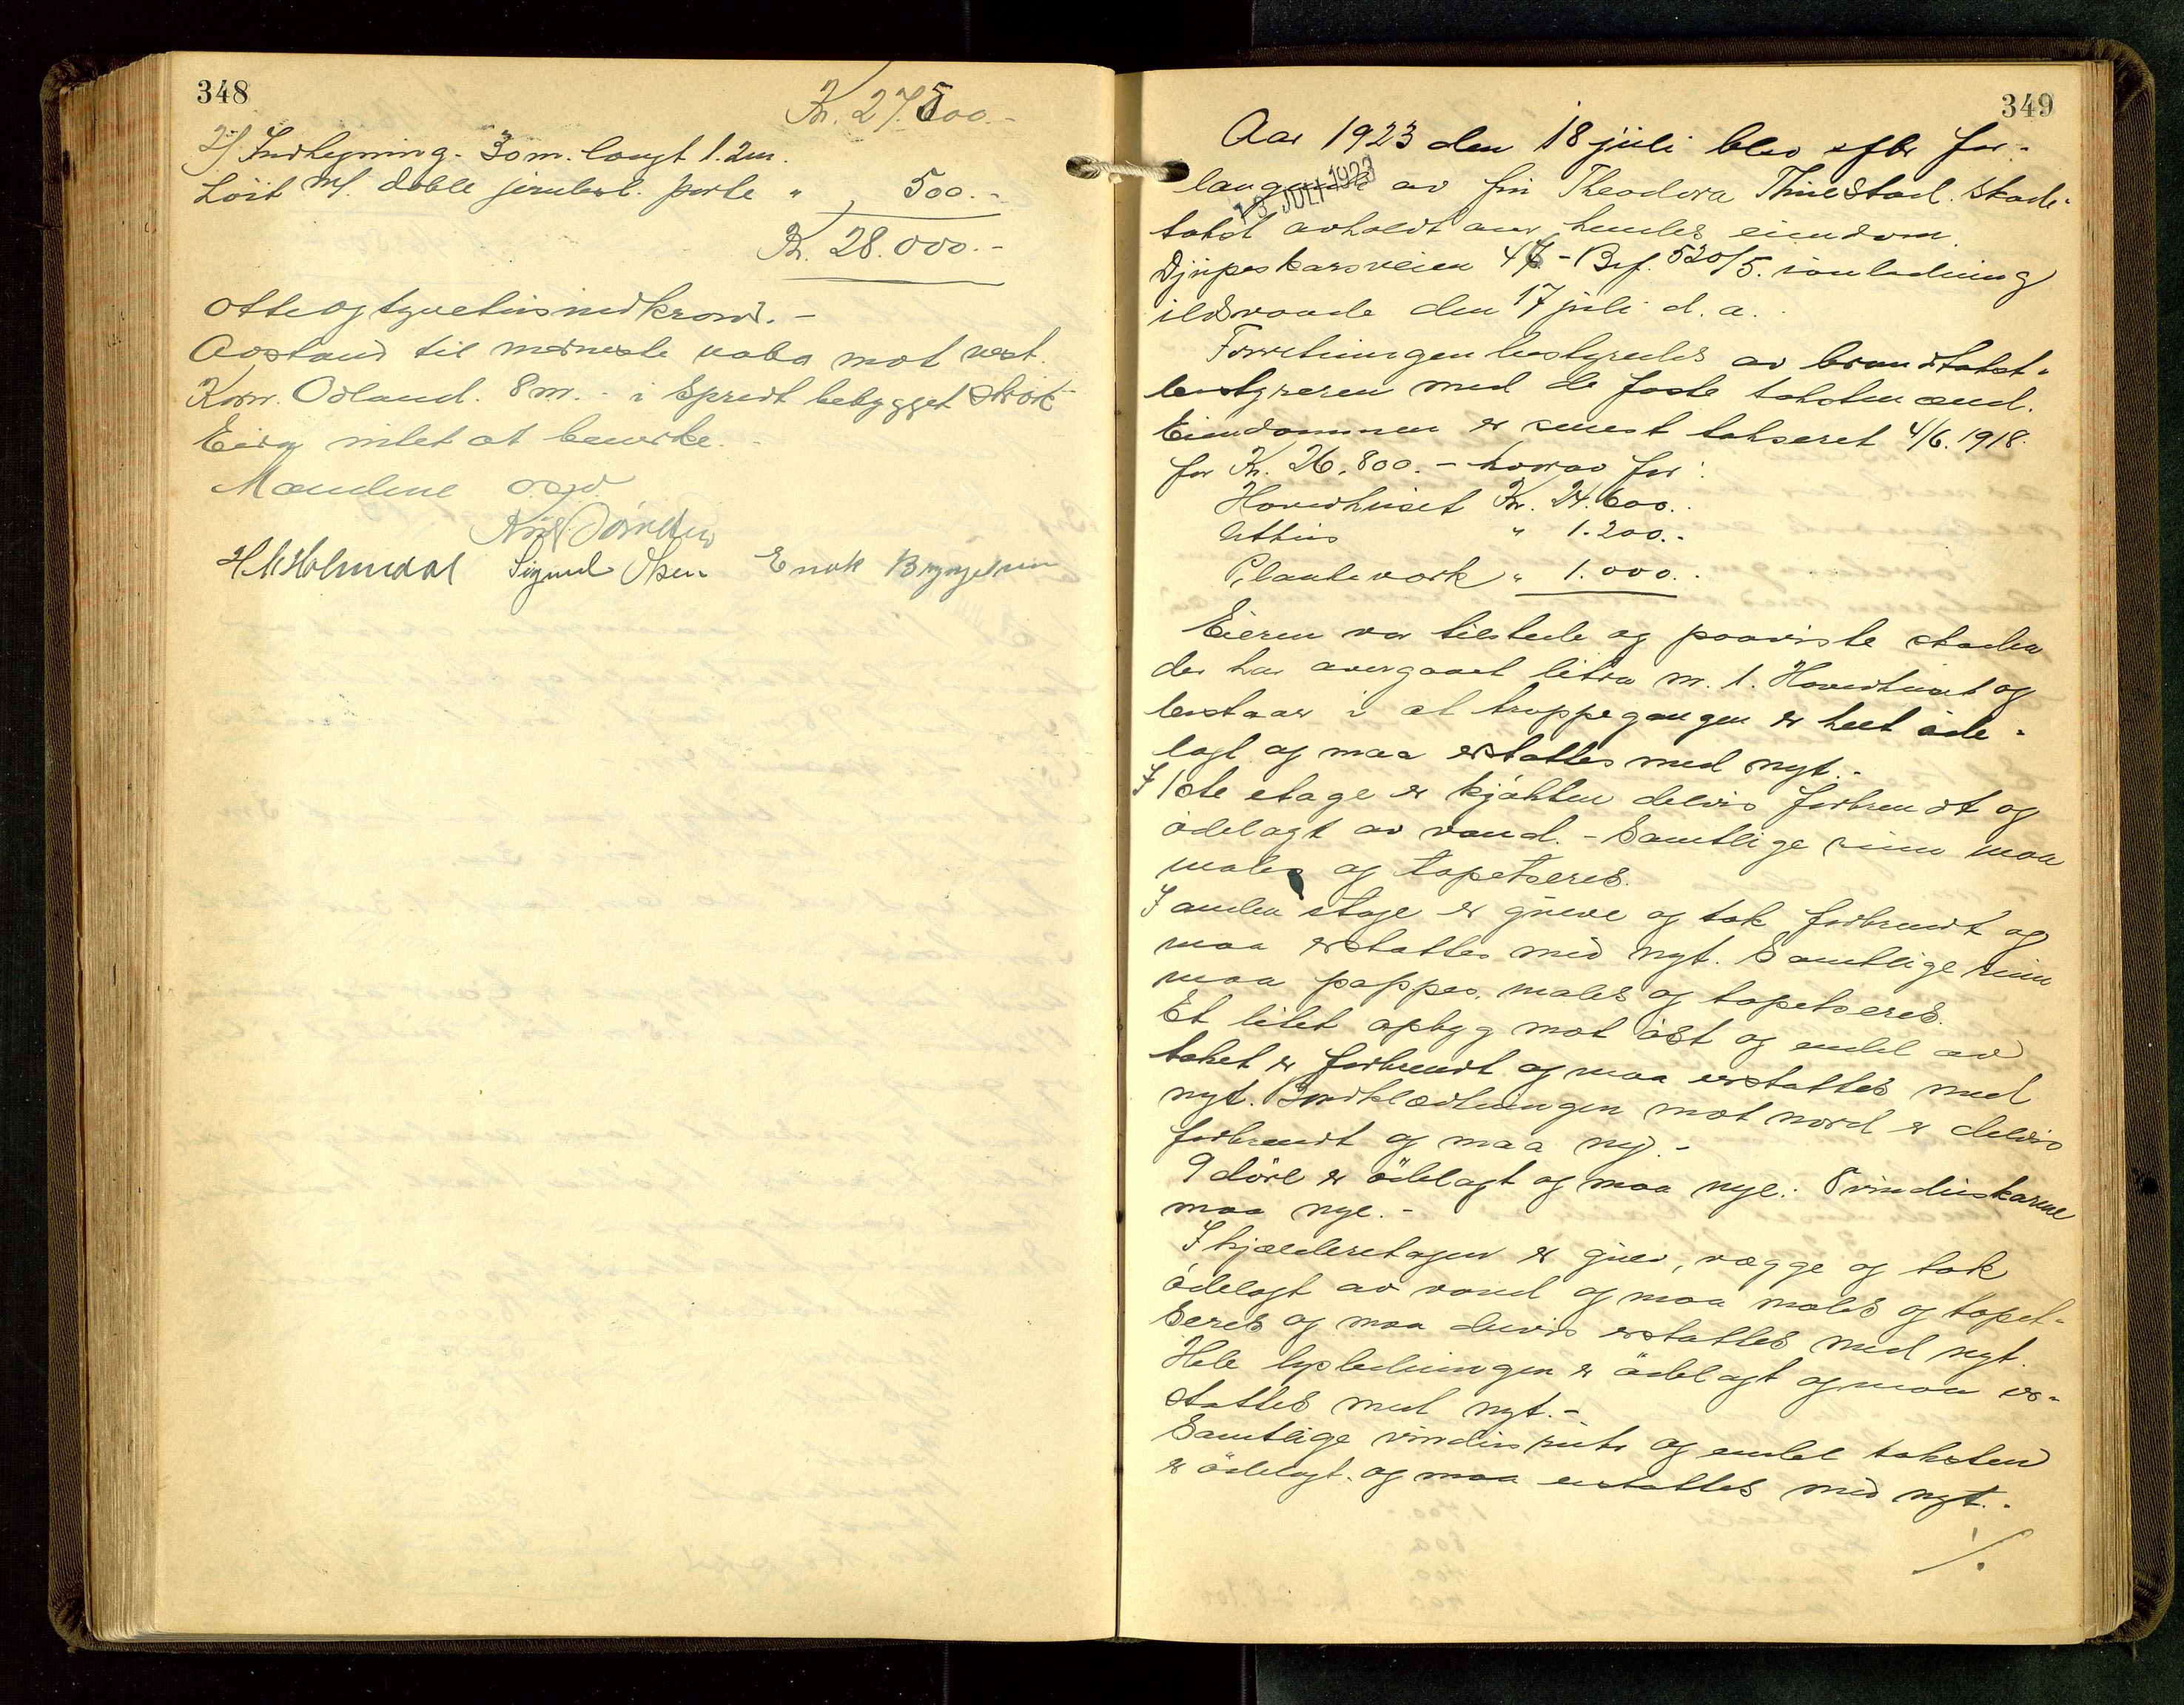 348
Kr. 27.500.-
2/ Indhegning. 30 m. langt 1.2 m.
höit m/ doble jernbesl. porte " 500.-
Kr. 28.000.-
otteogtyvetusindkroner.-
Avstand til nærmeste nabo mot vest.
Korn. Odland. 8 m. - i spredt bebygget strök
Eirig intet at bemerke. -
Mændene opgd.
H. M. Holmedal Sigurd Olsen Enok Bryngelsen
349
Aar 1923 den 18 juli blev efter for-
langende av fru Theodora Thuestad. skade-
18 JULI 1923
takst avholdt over hendes eiendom
Djupeskarsveien 47 - Brf. 520/5. i anledning
ildsvaade den 17 juli d. a. .
Forretningen bestyredes av brandtakst-
bestyreren med de faste takstmænd.
Eiendommen er senest takseret 4/6. 1918.
for Kr. 26.800.- hvorav for:
Hovedhuset Kr. 24.600.
Uthus " 1.200.-
Plankeverk " 1.000.-
Eieren var tilstede og paaviste skaden
der har overgaaet litra nr. 1. Hovedhuset og
bestaar i at trappegangen er helt öde-
lagt og maa erstattes med nyt.-
I 1ste etage er kjökken delvis forbrendt og
ödelagt av vand. - Samtlige rum maa
males og tapetseres.
I anden etage er gulve og tak forbrendt og
maa erstattes med nyt. Samtlige rum
maa pappes, males og tapetseres.
Et litet opbygg mot öst og endel av
taket er forbrendt og maa erstattes med
nyt. Indklædningen mot nord er delvis
forbrendt og maa ny.-
9 döre er ödelagt og maa nye. 8 vinduskarme
maa nye.-
I kjælderetagen er gulv, vægge og tak
ödelagt av vand og maa males og tapet-
seres og maa delvis erstattes med nyt.
Hele lysledningen er ödelagt og maa er-
stattes med nyt.-
Samtlige vindusruter og endel taksten
er ödelagt og maa erstattes med nyt.-
./.